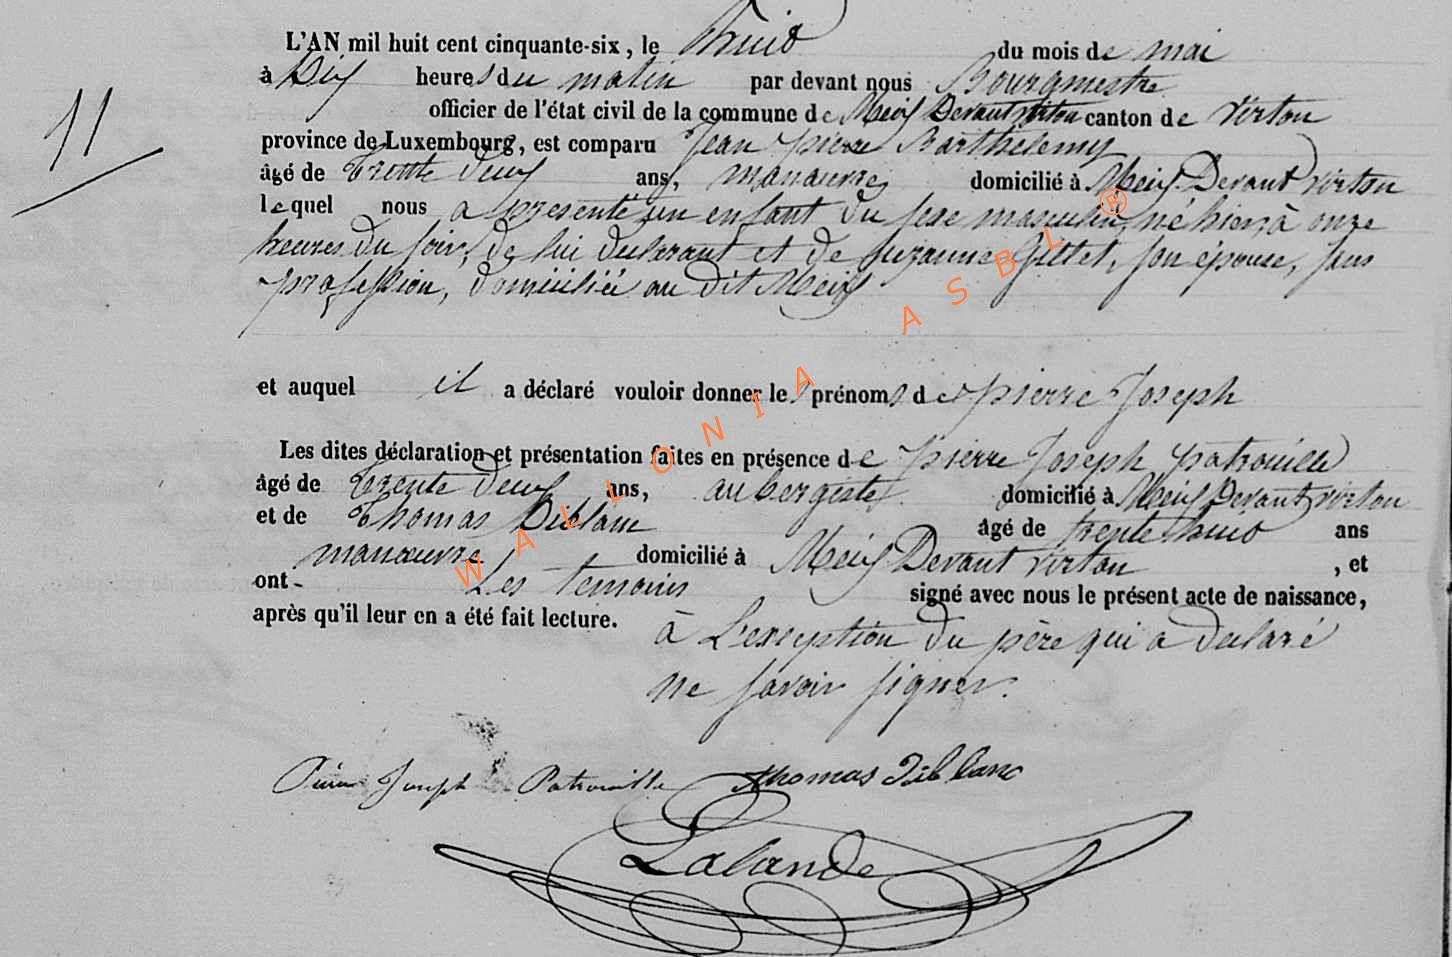 L'AN mil huit cent cinquante-six, le huit du mois de mai
à dix heures du matin par devant nous Bourgmestre
officier de l'état civil de la commune de Meix Devant virton canton de virton
11
province de Luxembourg, est comparu Jean pierre Barthélemy
âgé de trente deux ans, manœuvre, domicilié à Meix Devant virton
lequel nous a présenté un enfant du sexe masculin, né hier, à onze
heures du soir, de lui déclarant et de Suzanne Gillet, son épouse, sans
profession, domiciliée au dit Meix
et auquel il a déclaré vouloir donner les prénoms de pierre Joseph
Les dites déclaration et présentation faites en présence de pierre Joseph patrouille
âgé de trente deux ans, aubergiste domicilié à Meix Devant virton
et de Thomas Diblanc âgé de trente huit ans
manœuvre domicilié à Meix Devant virton, et
ont Les temoins signé avec nous le présent acte de naissance,
après qu'il leur en a été fait lecture. à L'exception du père qui a déclaré
ne savoir signer.
Pierre Joseph Patrouille Thomas Diblanc
Lalande
WALLONIA ASBL ®